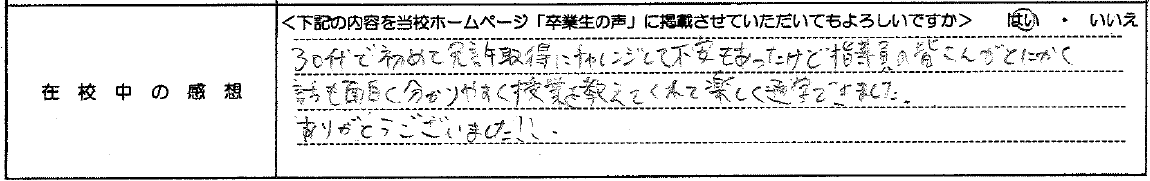 <下記の内容を当校ホームページ「卒業生の声」に掲載させていただいてもよろしいですか> はい ・ いいえ
在校中の感想
30代で初めて免許取得にチャレンジして不安もあったけど指導員の皆さんがとにかく
話も面白く分かりやすく授業を教えてくれて楽しく通学できました。
ありがとうございました!!.